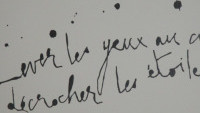 Lever les yeux au c
décrocher les étoile